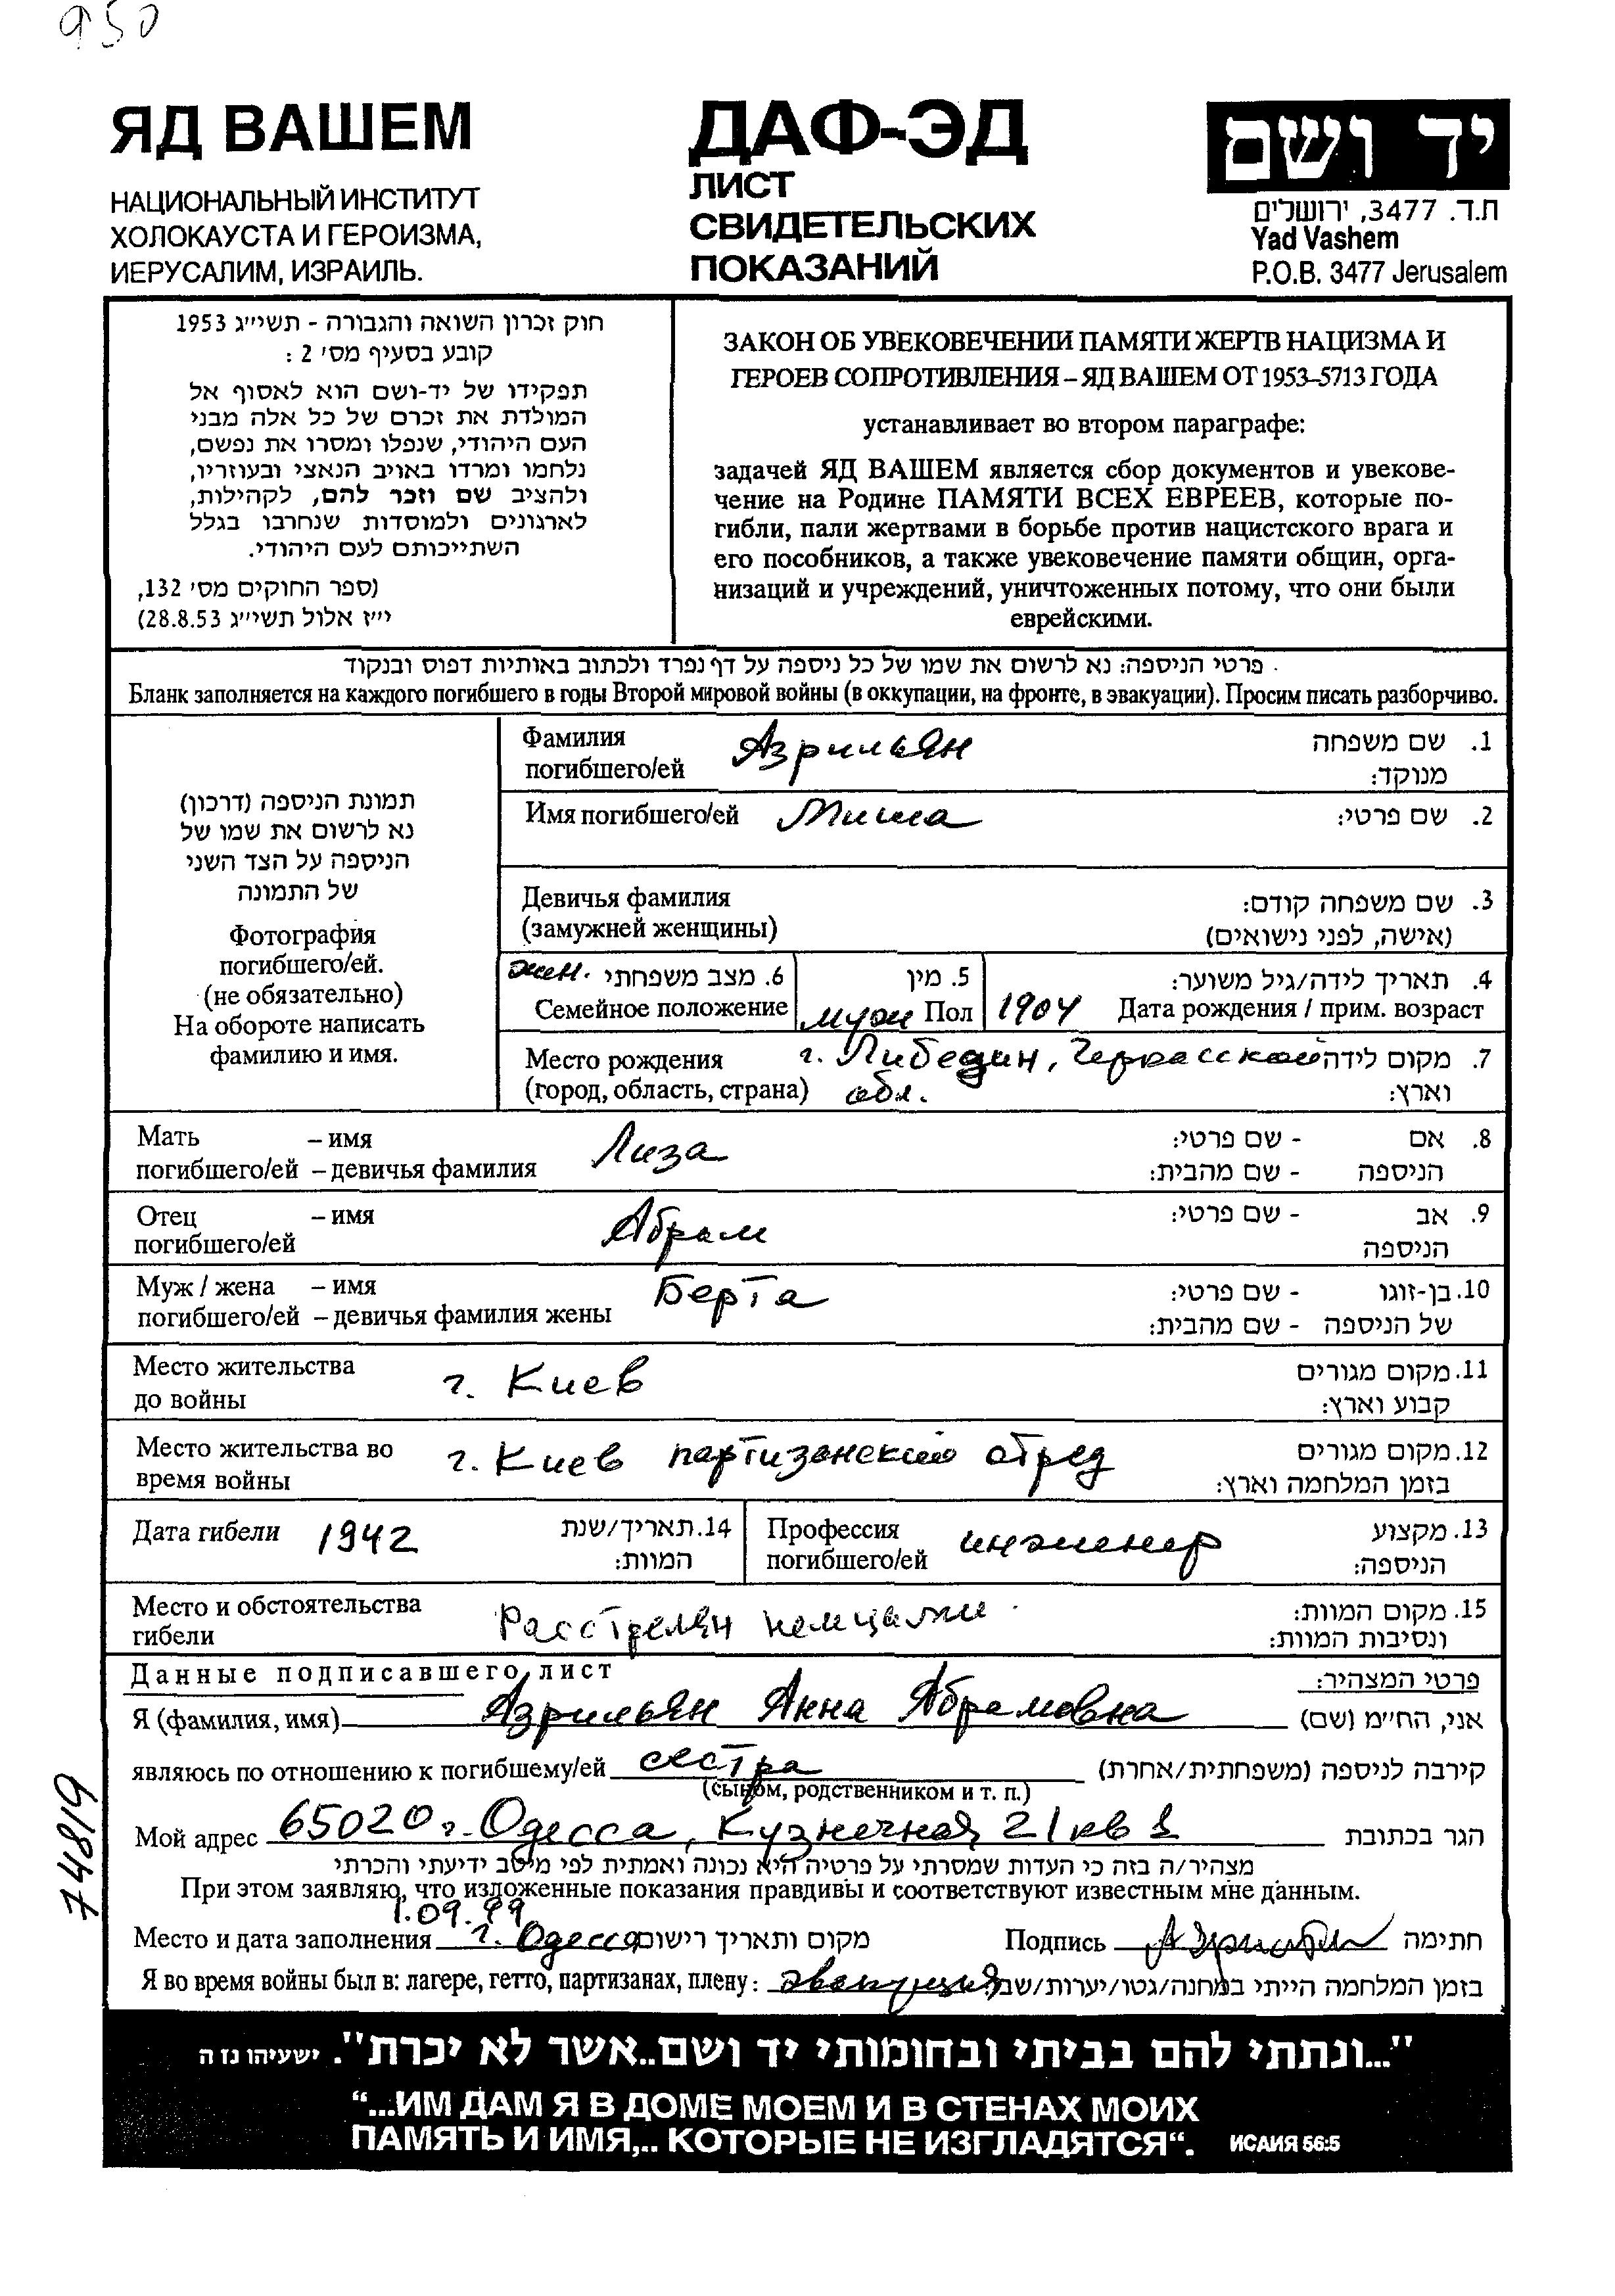 950
ЯД ВАШЕМ
НАЦИОНАЛЬНЫЙ ИНСТИТУТ
ХОЛОКАУСТА И ГЕРОИЗМА,
ИЕРУСАЛИМ, ИЗРАИЛЬ.
ДАФ-ЭД
ЛИСТ
СВИДЕТЕЛЬСКИХ
ПОКАЗАНИЙ
יד ושם
ת.ד. 3477, ירושלים
Yad Vashem
P.O.B. 3477 Jerusalem
חוק זכרון השואה והגבורה - תשי״ג 1953
קובע בסעיף מס׳ 2 :
תפקידו של יד-ושם הוא לאסוף אל
המולדת את זכרם של כל אלה מבני
העם היהודי, שנפלו ומסרו את נפשם,
נלחמו ומרדו באויב הנאצי ובעוזריו,
ולהציב שם וזכר להם, לקהילות,
לארגונים ולמוסדות שנחרבו בגלל
השתייכותם לעם היהודי.
(ספר החוקים מס׳ 132,
י״ז אלול תשי״ג 28.8.53)
ЗАКОН ОБ УВЕКОВЕЧЕНИИ ПАМЯТИ ЖЕРТВ НАЦИЗМА И
ГЕРОЕВ СОПРОТИВЛЕНИЯ – ЯД ВАШЕМ ОТ 1953–5713 ГОДА
устанавливает во втором параграфе:
задачей ЯД ВАШЕМ является сбор документов и увекове-
чение на Родине ПАМЯТИ ВСЕХ ЕВРЕЕВ, которые по-
гибли, пали жертвами в борьбе против нацистского врага и
его пособников, а также увековечение памяти общин, орга-
низаций и учреждений, уничтоженных потому, что они были
еврейскими.
פרטי הניספה: נא לרשום את שמו של כל ניספה על דף נפרד ולכתוב באותיות דפוס ובנקוד
Бланк заполняется на каждого погибшего в годы Второй мировой войны (в оккупации, на фронте, в эвакуации). Просим писать разборчиво.
תמונת הניספה (דרכון)
נא לרשום את שמו של
הניספה על הצד השני
של התמונה
Фотография
погибшего/ей.
(не обязательно)
На обороте написать
фамилию и имя.
Фамилия Азрильян 1. שם משפחה
погибшего/ей מנוקד:
Имя погибшего/ей Миша 2. שם פרטי:
Девичья фамилия 3. שם משפחה קודם:
(замужней женщины) (אישה, לפני נישואים)
жен. 6. מצב משפחתי 5. מין 4. תאריך לידה/גיל משוער:
Семейное положение муж Пол 1904 Дата рождения / прим. возраст
Место рождения г. Либедин, Черкасской 7. מקום לידה
(город, область, страна) обл. וארץ:
Мать – имя Лиза 8. אם - שם פרטי:
погибшего/ей – девичья фамилия הניספה - שם מהבית:
Отец – имя Абрам 9. אב - שם פרטי:
погибшего/ей הניספה
Муж / жена – имя Берта 10. בן-זוגו - שם פרטי:
погибшего/ей – девичья фамилия жены של הניספה - שם מהבית:
Место жительства г. Киев 11. מקום מגורים
до войны קבוע וארץ:
Место жительства во г. Киев партизанский отряд 12. מקום מגורים
время войны בזמן המלחמה וארץ:
Дата гибели 1942 14. תאריך/שנת
המוות:
Профессия инженер 13. מקצוע
погибшего/ей הניספה:
Место и обстоятельства Расстрелян немцами 15. מקום המוות:
гибели ונסיבות המוות:
Данные подписавшего лист פרטי המצהיר:
Я (фамилия, имя) Азрильян Анна Абрамовна אני, הח״מ (שם)
являюсь по отношению к погибшему/ей сестра קירבה לניספה (משפחתית/אחרת)
(сыном, родственником и т. п.)
Мой адрес 65020 г. Одесса, Кузнечная 21 кв 1 הגר בכתובת
מצהיר/ה בזה כי העדות שמסרתי על פרטיה היא נכונה ואמתית לפי מיטב ידיעתי והכרתי
При этом заявляю, что изложенные показания правдивы и соответствуют известным мне данным.
1.09.99
Место и дата заполнения г. Одесса מקום ותאריך רישום Подпись חתימה
Я во время войны был в: лагере, гетто, партизанах, плену: эвакуация בזמן המלחמה הייתי במחנה/גטו/יערות/שבי
74819
"...ונתתי להם בביתי ובחומותי יד ושם..אשר לא יכרת". ישעיהו נז ה
“...ИМ ДАМ Я В ДОМЕ МОЕМ И В СТЕНАХ МОИХ
ПАМЯТЬ И ИМЯ,.. КОТОРЫЕ НЕ ИЗГЛАДЯТСЯ“. ИСАИЯ 56:5